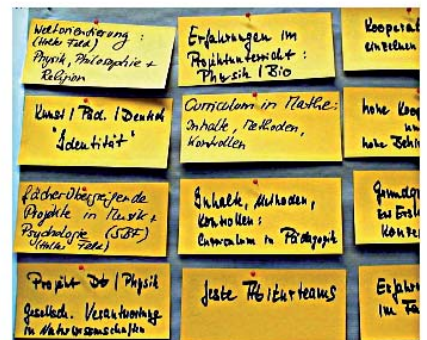 Weltorientierung :
(Holles Feld)
Physik, Philosophie +
Religion
Kunst / Päd. / Deutsch
"Identität"
fächerübergreifende
Projekte in Musik +
Psychologie (SBF)
(Holles Feld)
Projekt Db / Physik
gesellsch. Verantwortung
in Naturwissenschaften
Erfahrungen im
Projektunterricht :
Physik / Bio
Curriculum in Mathe:
Inhalte, Methoden,
Kontrollen
Inhalte, Methoden,
Kontrollen:
Curriculum in Pädagogik
feste Abiturteams
Kooperat
einzelnen
hohe Koop
un
hohe Behin
Grundge
zur Erst
Konze
Erfahr
im Fa